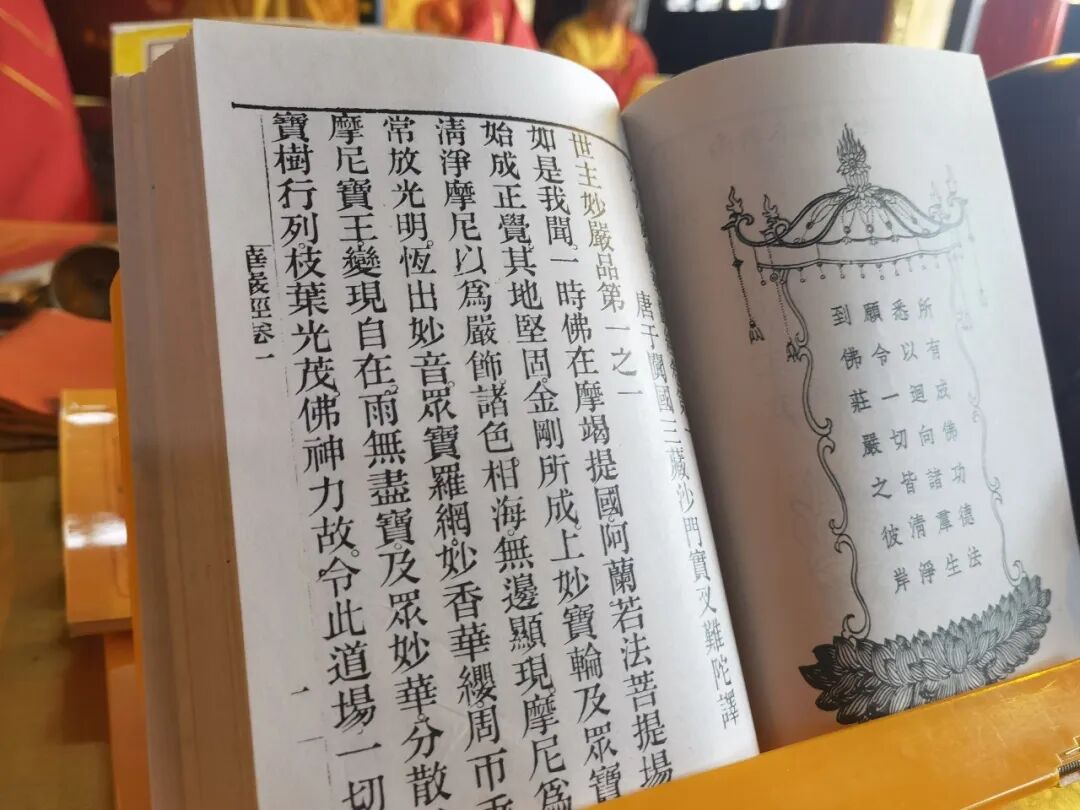 所有成佛功德法
悉以廻向諸羣生
願令一切皆清淨
到佛莊嚴之彼岸
唐于闐國三藏沙門實叉難陀譯
世主妙嚴品第一之一
如是我聞。一時佛在摩竭提國。阿蘭若法菩提場
始成正覺。其地堅固。金剛所成。上妙寶輪及眾寶
清淨摩尼以爲嚴飾。諸色相海。無邊顯現。摩尼爲
常放光明。恆出妙音。眾寶羅網。妙香華纓。周帀
摩尼寶王。變現自在。雨無盡寶。及眾妙華。分散
寶樹行列。枝葉光茂。佛神力故。令此道場一切
華嚴經卷一
一